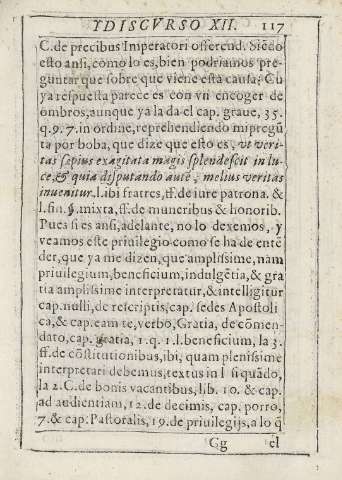 YDISCVRSO XII. 117
C. de precibus Imperatori offerend. Siẽdo
esto ansi, como lo es, bien podriamos pre-
guntar que sobre que viene esta causa; Cu
ya respuesta parece es con vn encoger de
ombros, aunque ya la da el cap. graue, 35.
q. 9. 7. in ordine, reprehendiendo mi pregũ
ta por boba, que dize que esto es, vt veri-
tas sæpius exagitata magis splendescit in lu-
ce, & quia disputando autẽ, melius veritas
inuenitur. l. ibi fratres, ff. de iure patrona. &
l. fin. §. mixta, ff. de muneribus & honorib.
Pues si es ansi, adelante, no lo dexemos, y
veamos este priuilegio como se ha de entẽ
der, que ya me dizen, que amplissime, nam
priuilegium, beneficium, indulgẽtia, & gra
tia amplissime interpretatur, & intelligitur
cap. nulli, de rescriptis, cap. sedes Apostoli
ca, & cap. eam te, verbo, Gratia, de cõmen-
dato, cap. gratia, 1. q. 1. l. beneficium, la 3.
ff. de cõstitutionibus, ibi, quam plenissime
interpretari debemus, textus in l si quãdo,
la 2. C. de bonis vacantibus, lib. 10. & cap.
ad audientiam, 12. de decimis, cap. porro,
7. & cap. Pastoralis, 19. de priuilegijs, a lo q̃
Gg el